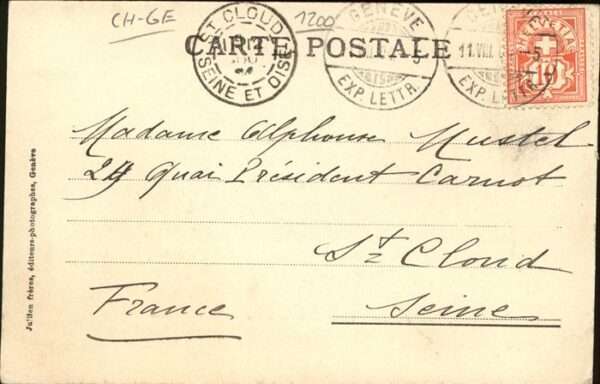 CH-GE
1200
ST CLOUD
SEINE ET OISE
GENÈVE
EXP. LETTR.
11.VIII.
EXP. LETTR.
HELVETIA
10
CARTE POSTALE
Madame Alphonse Mustel
24 Quai Président Carnot
St Cloud
Seine
France
Jullien frères, éditeurs-photographes, Genève